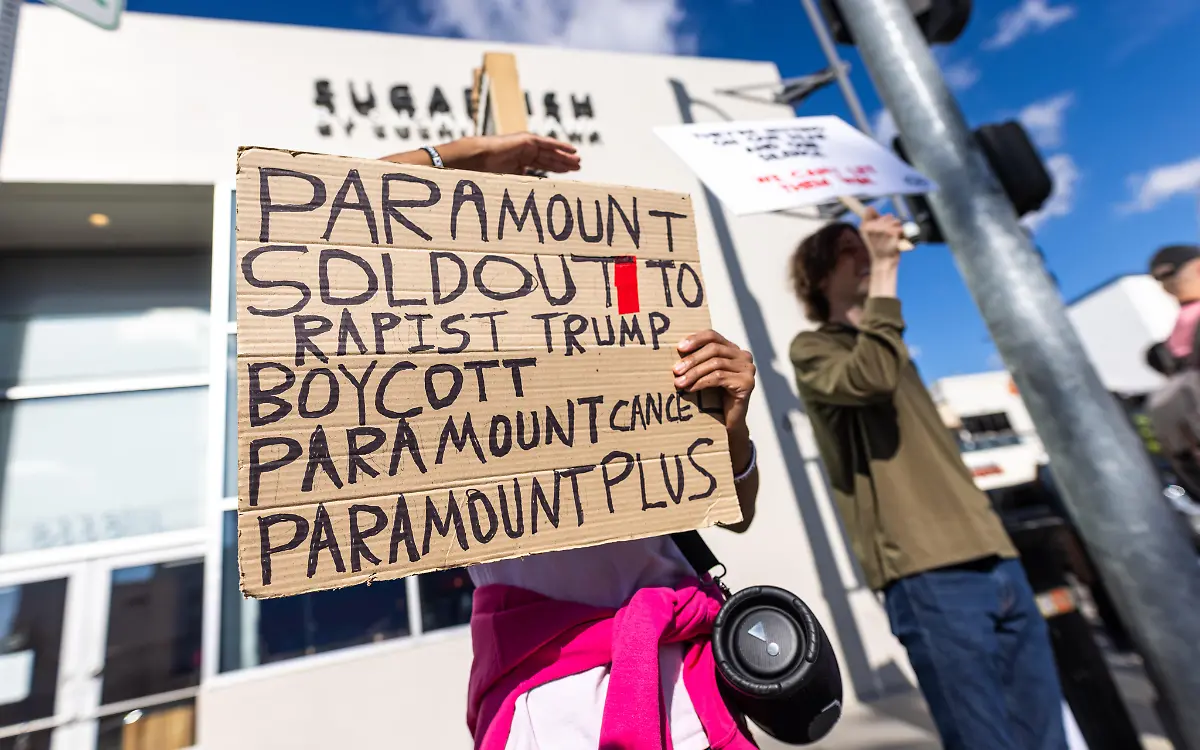 SUGARFISH
PARAMOUNT
SOLDOUT TO
RAPIST TRUMP
BOYCOTT
PARAMOUNT CANCEL
PARAMOUNT PLUS
SILENCE
WE CAN'T LET
THEM WIN